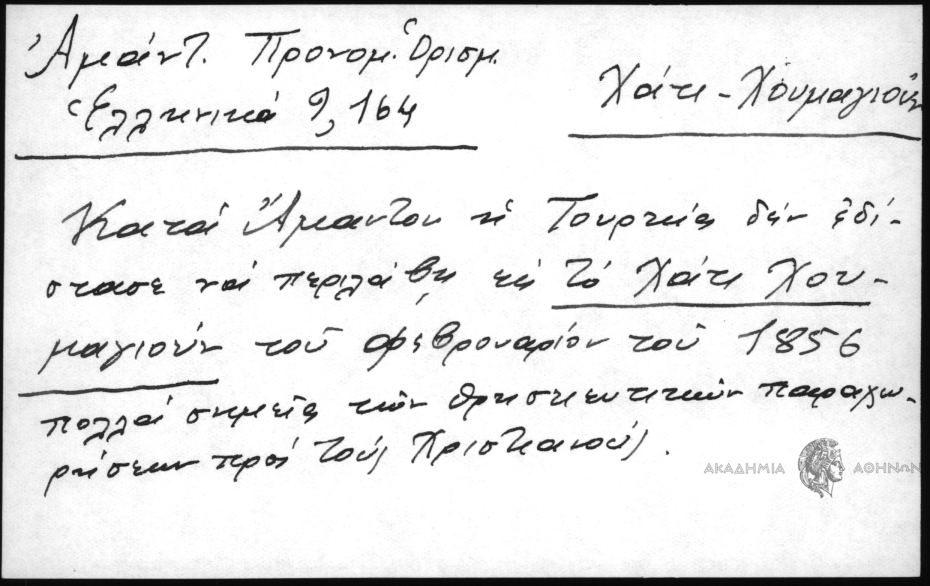 Ἀμάντ. Προνομ. Ὁρισμ.
Ἑλληνικά 9, 164
Χάτι-Χουμαγιούν
Κατά Ἄμαντον ἡ Τουρκία δέν ἐδί-
στασε νά περιλάβῃ εἰς τό Χάτι Χου-
μαγιούν τοῦ Φεβρουαρίου τοῦ 1856
πολλά σημεῖα τῶν θρησκευτικῶν παραχω-
ρήσεων πρός τούς Χριστιανούς.
ΑΚΑΔΗΜΙΑ ΑΘΗΝΩΝ